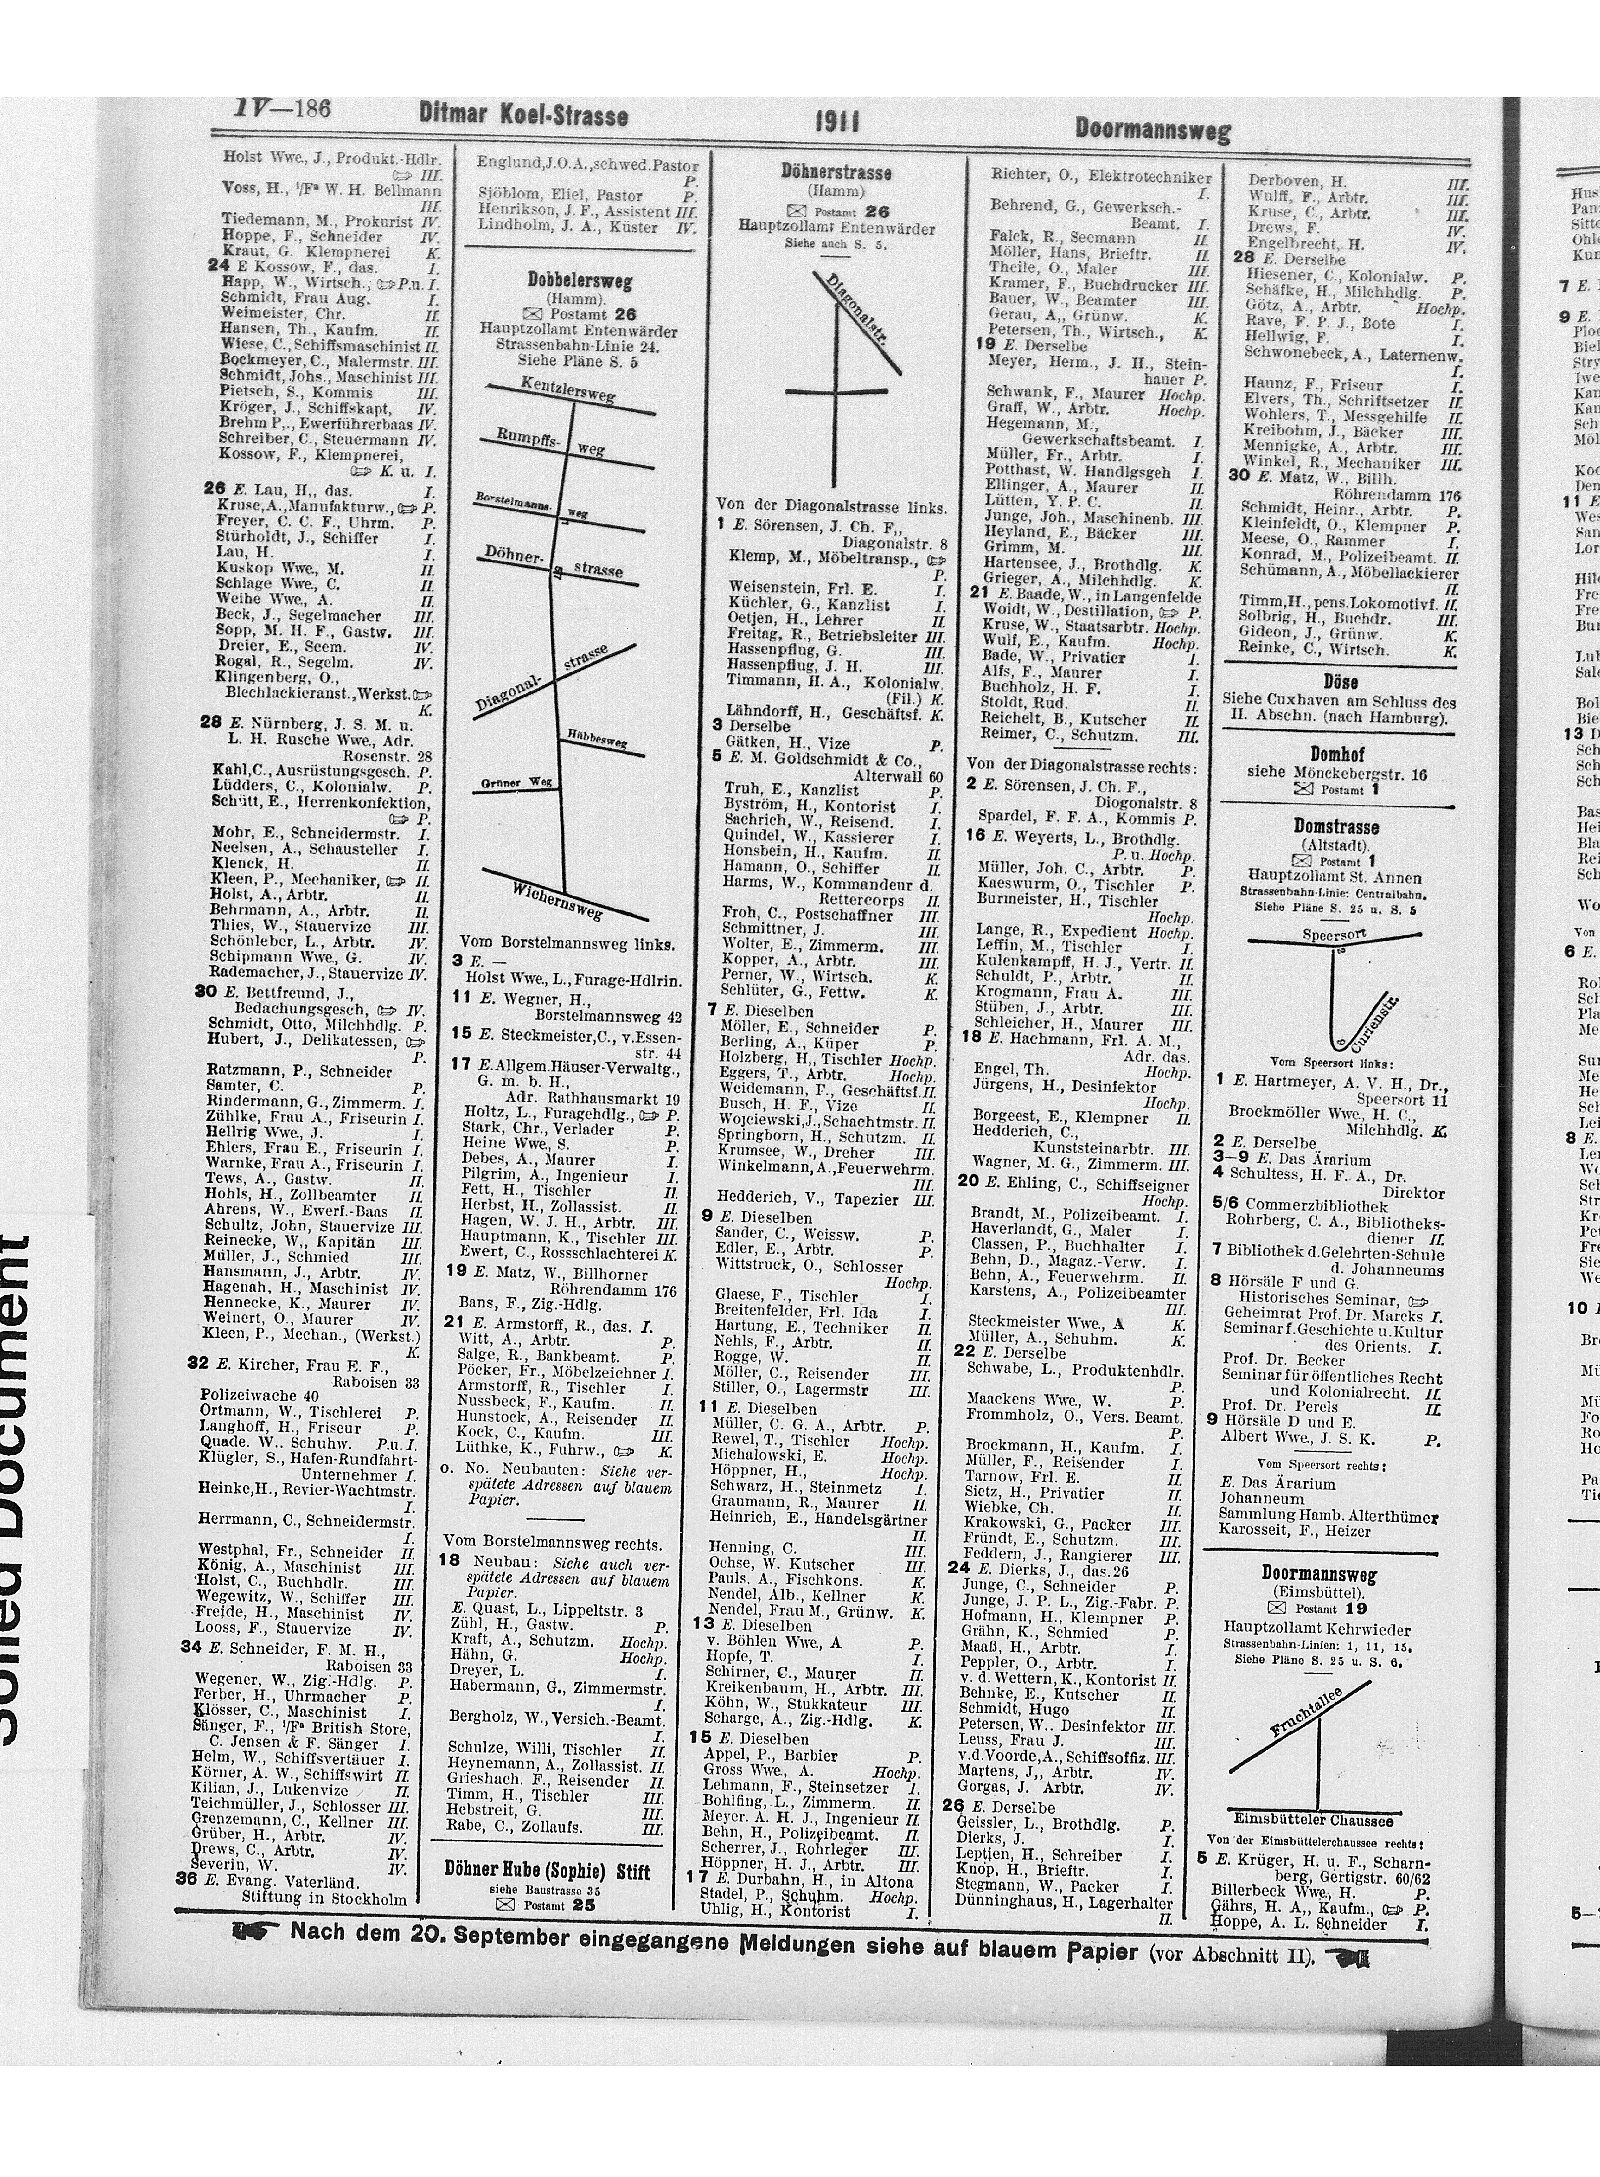 IV—186
Ditmar Koel-Strasse
1911
Doormannsweg
Holst Wwe., J., Produkt.-Hdlr.
III.
Voss, H., 1/Fa W. H. Bellmann
III.
Tiedemann, M., Prokurist IV.
Hoppe, F., Schneider IV.
Kraut, G. Klempnerei K.
24 E Kossow, F., das. I.
Happ, W., Wirtsch., P.u. I.
Schmidt, Frau Aug. I.
Weimeister, Chr. II.
Hansen, Th., Kaufm. II.
Wiese, C., Schiffsmaschinist II.
Bockmeyer, C., Malermstr. III.
Schmidt, Johs., Maschinist III.
Pietsch, S., Kommis III.
Kröger, J., Schiffskapt, IV.
Brehm P., Ewerführerbaas IV.
Schreiber, C., Steuermann IV.
Kossow, F., Klempnerei,
K. u. I.
26 E. Lau, H., das. I.
Kruse, A., Manufakturw., P.
Freyer, C. C. F., Uhrm. P.
Stürholdt, J., Schiffer I.
Lau, H. I.
Kuskop Wwe., M. II.
Schlage Wwe., C. II.
Weihe Wwe., A. II.
Beck, J., Segelmacher III.
Sopp, M. H. F., Gastw. III.
Dreier, E., Seem. IV.
Rogal, R., Segelm. IV.
Klingenberg, O.,
Blechlackieranst., Werkst.
K.
28 E. Nürnberg, J. S. M. u.
L. H. Rusche Wwe., Adr.
Rosenstr. 28
Kahl, C., Ausrüstungsgesch. P.
Lüdders, C., Kolonialw. P.
Schütt, E., Herrenkonfektion,
P.
Mohr, E., Schneidermstr. I.
Neelsen, A., Schausteller I.
Klenck, H. II.
Kleen, P., Mechaniker, II.
Holst, A., Arbtr. II.
Behrmann, A., Arbtr. II.
Thies, W., Stauervize III.
Schönleber, L., Arbtr. IV.
Schipmann Wwe., G. IV.
Rademacher, J., Stauervize IV.
30 E. Bettfreund, J.,
Bedachungsgesch, IV.
Schmidt, Otto, Milchhdlg. P.
Hubert, J., Delikatessen,
P.
Ratzmann, P., Schneider
Samter, C. P.
Rindermann, G., Zimmerm. I.
Zühlke, Frau A., Friseurin I.
Hellrig Wwe., J. I.
Ehlers, Frau E., Friseurin I.
Warnke, Frau A., Friseurin I.
Tews, A., Gastw. II.
Hohls, H., Zollbeamter II.
Ahrens, W., Ewerf.-Baas II.
Schultz, John, Stauervize III.
Reinecke, W., Kapitän III.
Müller, J., Schmied III.
Hansmann, J., Arbtr. IV.
Hagenah, H., Maschinist IV.
Hennecke, K., Maurer IV.
Weinert, O., Maurer IV.
Kleen, P., Mechan., (Werkst.)
K.
32 E. Kircher, Frau E. F.,
Raboisen 33
Polizeiwache 40
Ortmann, W., Tischlerei P.
Langhoff, H., Friseur P.
Quade. W., Schuhw. P.u. I.
Klügler, S., Hafen-Rundfahrt-
Unternehmer I.
Heinke, H., Revier-Wachtmstr.
I.
Herrmann, C., Schneidermstr.
I.
Westphal, Fr., Schneider II.
König, A., Maschinist III.
Holst, C., Buchhdlr. III.
Wegewitz, W., Schiffer III.
Freide, H., Maschinist IV.
Looss, F., Stauervize IV.
34 E. Schneider, F. M. H.,
Raboisen 33
Wegener, W., Zig.-Hdlg. P.
Ferber, H., Uhrmacher P.
Klösser, C., Maschinist I.
Sänger, F., 1/Fa British Store,
C. Jensen & F. Sänger I.
Helm, W., Schiffsvertäuer I.
Körner, A. W., Schiffswirt II.
Kilian, J., Lukenvize II.
Teichmüller, J., Schlosser III.
Grenzemann, C., Kellner III.
Grüber, H., Arbtr. IV.
Drews, C., Arbtr. IV.
Severin, W. IV.
36 E. Evang. Vaterländ.
Stiftung in Stockholm
Englund, J.O.A., schwed. Pastor
P.
Sjöblom, Eliel, Pastor P.
Henrikson, J. F., Assistent III.
Lindholm, J. A., Küster IV.
Dobbelersweg
(Hamm).
Postamt 26
Hauptzollamt Entenwärder
Strassenbahn-Linie 24.
Siehe Pläne S. 5
Kentzlersweg
Rumpffs- weg
Borstelmanns- weg
Döhner- strasse
Diagonal- strasse
Hübbesweg
Grüner Weg
Wichernsweg
Vom Borstelmannsweg links.
3 E. —
Holst Wwe., L., Furage-Hdlrin.
11 E. Wegner, H.,
Borstelmannsweg 42
15 E. Steckmeister, C., v. Essen-
str. 44
17 E. Allgem. Häuser-Verwaltg.,
G. m. b. H.,
Adr. Rathhausmarkt 19
Holtz, L., Furagehdlg., P.
Stark, Chr., Verlader P.
Heine Wwe., S. P.
Debes, A., Maurer I.
Pilgrim, A., Ingenieur I.
Fett, H., Tischler II.
Herbst, H., Zollassist. II.
Hagen, W. J. H., Arbtr. III.
Hauptmann, K., Tischler III.
Ewert, C., Rossschlachterei K.
19 E. Matz, W., Billhorner
Röhrendamm 176
Bans, F., Zig.-Hdlg.
21 E. Armstorff, R., das. I.
Witt, A., Arbtr. P.
Salge, R., Bankbeamt. P.
Pöcker, Fr., Möbelzeichner I.
Armstorff, R., Tischler I.
Nussbeck, F., Kaufm. II.
Hunstock, A., Reisender II.
Kock, C., Kaufm. III.
Lüthke, K., Fuhrw., K.
o. No. Neubauten: Siehe ver-
spätete Adressen auf blauem
Papier.
Vom Borstelmannsweg rechts.
18 Neubau: Siehe auch ver-
spätete Adressen auf blauem
Papier.
E. Quast, L., Lippeltstr. 3
Zühl, H., Gastw. P.
Kraft, A., Schutzm. Hochp.
Hähn, G. Hochp.
Dreyer, L. I.
Habermann, G., Zimmermstr.
I.
Bergholz, W., Versich.-Beamt.
I.
Schulze, Willi, Tischler II.
Heynemann, A., Zollassist. II.
Griesbach. F., Reisender II.
Timm, H., Tischler III.
Hebstreit, G. III.
Rabe, C., Zollaufs. III.
Döhner Hube (Sophie) Stift
siehe Baustrasse 35
Postamt 25
Döhnerstrasse
(Hamm)
Postamt 26
Hauptzollamt Entenwärder
Siehe auch S. 5.
Diagonalstr.
Von der Diagonalstrasse links.
1 E. Sörensen, J. Ch. F.,
Diagonalstr. 8
Klemp, M., Möbeltransp.,
P.
Weisenstein, Frl. E. I.
Küchler, G., Kanzlist I.
Oetjen, H., Lehrer II.
Freitag, R., Betriebsleiter III.
Hassenpflug, G. III.
Hassenpflug, J. H. III.
Timmann, H. A., Kolonialw.
(Fil.) K.
Lähndorff, H., Geschäftsf. K.
3 Derselbe
Gätken, H., Vize P.
5 E. M. Goldschmidt & Co.,
Alterwall 60
Truh, E., Kanzlist P.
Byström, H., Kontorist I.
Sachrich, W., Reisend. I.
Quindel, W., Kassierer I.
Honsbein, H., Kaufm. II.
Hamann, O., Schiffer II.
Harms, W., Kommandeur d.
Rettercorps II.
Froh, C., Postschaffner III.
Schmittner, J. III.
Wolter, E., Zimmerm. III.
Kopper, A., Arbtr. III.
Perner, W., Wirtsch. K.
Schlüter, G., Fettw. K.
7 E. Dieselben
Möller, E., Schneider P.
Berling, A., Küper P.
Holzberg, H., Tischler Hochp.
Eggers, T., Arbtr. Hochp.
Weidemann, F., Geschäftsf. II.
Busch, H. F., Vize II.
Wojciewski, J., Schachtmstr. II.
Springborn, H., Schutzm. II.
Krumsee, W., Dreher III.
Winkelmann, A., Feuerwehrm.
III.
Hedderich, V., Tapezier III.
9 E. Dieselben
Sander, C., Weissw. P.
Edler, E., Arbtr. P.
Wittstruck, O., Schlosser
Hochp.
Glaese, F., Tischler I.
Breitenfelder, Frl. Ida I.
Hartung, E., Techniker II.
Nehls, F., Arbtr. II.
Rogge, W. II.
Möller, C., Reisender III.
Stiller, O., Lagermstr III.
11 E. Dieselben
Müller, C. G. A., Arbtr. P.
Rewel, T., Tischler Hochp.
Michalowski, E. Hochp.
Höppner, H., Hochp.
Schwarz, H., Steinmetz I.
Graumann, R., Maurer II.
Heinrich, E., Handelsgärtner
II.
Henning, C. III.
Ochse, W. Kutscher III.
Pauls. A., Fischkons. K.
Nendel, Alb., Kellner K.
Nendel, Frau M., Grünw. K.
13 E. Dieselben
v. Böhlen Wwe., A P.
Hopfe, T. I.
Schirner, C., Maurer II.
Kreikenbaum, H., Arbtr. III.
Köhn, W., Stukkateur III.
Scharge, A., Zig.-Hdlg. K.
15 E. Dieselben
Appel, P., Barbier P.
Gross Wwe., A. Hochp.
Lehmann, F., Steinsetzer I.
Bohlfing, L., Zimmerm. II.
Meyer. A. H. J., Ingenieur II.
Behn, H., Polizeibeamt. II.
Scherrer, J., Rohrleger III.
Höppner, H. J., Arbtr. III.
17 E. Durbahn, H., in Altona
Stadel, P., Schuhm. Hochp.
Uhlig, H., Kontorist I.
Richter, O., Elektrotechniker
I.
Behrend, G., Gewerksch.-
Beamt. I.
Falck, R., Seemann II.
Möller, Hans, Brieftr. II.
Theile, O., Maler III.
Kramer, F., Buchdrucker III.
Bauer, W., Beamter III.
Gerau, A., Grünw. K.
Petersen, Th., Wirtsch., K.
19 E. Derselbe
Meyer, Herm., J. H., Stein-
hauer P.
Schwank, F., Maurer Hochp.
Graff, W., Arbtr. Hochp.
Hegemann, M.,
Gewerkschaftsbeamt. I.
Müller, Fr., Arbtr. I.
Potthast, W. Handlgsgeh I.
Ellinger, A., Maurer II.
Lütten, Y. P. C. II.
Junge, Joh., Maschinenb. III.
Heyland, E., Bäcker III.
Grimm, M. III.
Hartensee, J., Brothdlg. K.
Grieger, A., Milchhdlg. K.
21 E. Baade, W., in Langenfelde
Woidt, W., Destillation, P.
Kruse, W., Staatsarbtr. Hochp.
Wulf, E., Kaufm. Hochp.
Bade, W., Privatier I.
Alfs, F., Maurer I.
Buchholz, H. F. I.
Stoldt, Rud. II.
Reichelt, B., Kutscher II.
Reimer, C., Schutzm. III.
Von der Diagonalstrasse rechts:
2 E. Sörensen, J. Ch. F.,
Diogonalstr. 8
Spardel, F. F. A., Kommis P.
16 E. Weyerts, L., Brothdlg.
P. u. Hochp.
Müller, Joh. C., Arbtr. P.
Kaeswurm, O., Tischler P.
Burmeister, H., Tischler
Hochp.
Lange, R., Expedient Hochp.
Leffin, M., Tischler I.
Kulenkampff, H. J., Vertr. II.
Schuldt, P., Arbtr. II.
Krogmann, Frau A. III.
Stüben, J., Arbtr. III.
Schleicher, H., Maurer III.
18 E. Hachmann, Frl. A. M.,
Adr. das.
Engel, Th. Hochp.
Jürgens, H., Desinfektor
Hochp.
Borgeest, E., Klempner II.
Hedderich, C.,
Kunststeinarbtr. III.
Wagner, M. G., Zimmerm. III.
20 E. Ehling, C., Schiffseigner
Hochp.
Brandt, M., Polizeibeamt. I.
Haverlandt, G., Maler I.
Classen, P., Buchhalter I.
Behn, D., Magaz.-Verw. I.
Behn, A., Feuerwehrm. II.
Karstens, A., Polizeibeamter
III.
Steckmeister Wwe., A K.
Müller, A., Schuhm. K.
22 E. Derselbe
Schwabe, L., Produktenhdlr.
P.
Maackens Wwe., W. P.
Frommholz, O., Vers. Beamt.
P.
Brockmann, H., Kaufm. I.
Müller, F., Reisender I.
Tarnow, Frl. E. II.
Sietz, H., Privatier II.
Wiebke, Ch. II.
Krakowski, G., Packer III.
Fründt, E., Schutzm. III.
Feddern, J., Rangierer III.
24 E. Dierks, J., das. 26
Junge, C., Schneider P.
Junge, J. P. L., Zig.-Fabr. P.
Hofmann, H., Klempner P.
Grähn, K., Schmied P.
Maaß, H., Arbtr. I.
Peppler, O., Arbtr. I.
v. d. Wettern, K., Kontorist II.
Behnke, E., Kutscher II.
Schmidt, Hugo II.
Petersen, W.. Desinfektor III.
Leuss, Frau J. III.
v.d.Voorde, A., Schiffsoffiz. III.
Martens, J., Arbtr. IV.
Gorgas, J. Arbtr. IV.
26 E. Derselbe
Geissler, L., Brothdlg. P.
Dierks, J. I.
Leptien, H., Schreiber I.
Knop, H., Brieftr. I.
Stegmann, W., Packer I.
Dünninghaus, H., Lagerhalter
II.
Derboven, H. III.
Wulff, F., Arbtr. III.
Kruse, C., Arbtr. III.
Drews, F. IV.
Engelbrecht, H. IV.
28 E. Derselbe
Hiesener, C., Kolonialw. P.
Schäfke, H., Milchhdlg. P.
Götz, A., Arbtr. Hochp.
Rave, F. P. J., Bote I.
Hellwig, F. I.
Schwonebeck, A., Laternenw.
I.
Haunz, F., Friseur I.
Elvers, Th., Schriftsetzer II.
Wohlers, T., Messgehilfe II.
Kreibohm, J., Bäcker III.
Mennigke, A., Arbtr. III.
Winkel, R., Mechaniker III.
30 E. Matz, W., Billh.
Röhrendamm 176
Schmidt, Heinr., Arbtr. P.
Kleinfeldt, O., Klempner P.
Meese, O., Rammer I.
Konrad, M., Polizeibeamt. II.
Schümann, A., Möbellackierer
II.
Timm, H., pens. Lokomotivf. II.
Solbrig, H., Buchdr. III.
Gideon, J., Grünw. K.
Reinke, C., Wirtsch. K.
Döse
Siehe Cuxhaven am Schluss des
II. Abschn. (nach Hamburg).
Domhof
siehe Mönckebergstr. 16
Postamt 1
Domstrasse
(Altstadt).
Postamt 1
Hauptzollamt St. Annen
Strassenbahn-Linie: Centralbahn.
Siehe Pläne S. 25 u. S. 5
Speersort
Curienstr.
Vom Speersort links:
1 E. Hartmeyer, A. V. H., Dr.,
Speersort 11
Brockmöller Wwe., H. C.,
Milchhdlg. K.
2 E. Derselbe
3—9 E. Das Ärarium
4 Schultess, H. F. A., Dr.
Direktor
5/6 Commerzbibliothek
Rohrberg, C. A., Bibliotheks-
diener II.
7 Bibliothek d. Gelehrten-Schule
d. Johanneums
8 Hörsäle F und G.
Historisches Seminar,
Geheimrat Prof. Dr. Marcks I.
Seminar f. Geschichte u. Kultur
des Orients. I.
Prof. Dr. Becker
Seminar für öffentliches Recht
und Kolonialrecht. II.
Prof. Dr. Perels II.
9 Hörsäle D und E.
Albert Wwe., J. S. K. P.
Vom Speersort rechts:
E. Das Ärarium
Johanneum
Sammlung Hamb. Alterthümer
Karosseit, F., Heizer
Doormannsweg
(Eimsbüttel).
Postamt 19
Hauptzollamt Kehrwieder
Strassenbahn-Linien: 1, 11, 15.
Siehe Pläne S. 25 u. S. 6.
Fruchtallee
Eimsbütteler Chaussee
Von der Eimsbüttelerchaussee rechts:
5 E. Krüger, H. u. F., Scharn-
berg, Gertigstr. 60/62
Billerbeck Wwe., H. P.
Gährs, H. A., Kaufm., P.
Hoppe, A. L. Schneider I.
Nach dem 20. September eingegangene Meldungen siehe auf blauem Papier (vor Abschnitt II).
Document